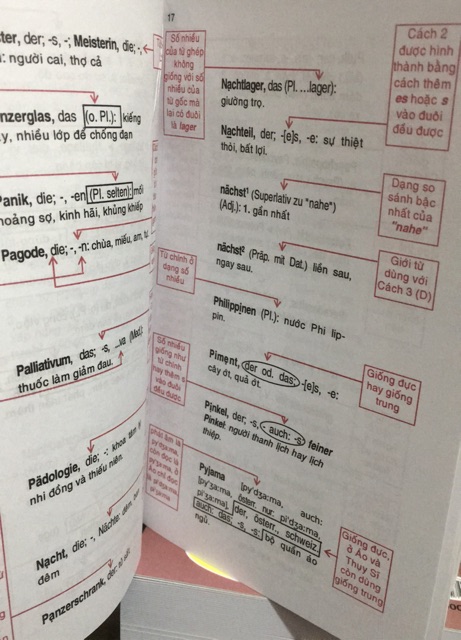 ster, der; -s, -; Meisterin, die; -,
n: người cai, thợ cả
nzerglas, das (o. Pl.): kiếng
y, nhiều lớp để chống đạn
Panik, die; -, -en (Pl. selten): mối
hoảng sợ, kinh hãi, khủng khiếp
Pagode, die; -, -n: chùa, miếu, am, tự
Palliativum, das; -s, ...va (Med.):
thuốc làm giảm đau.
Pädologie, die; -: khoa tâm lí
nhi đồng và thiếu niên.
Nacht, die; -, Nächte: đêm, ban
đêm
Panzerschrank, der: tủ sắt
17
Số nhiều
của từ ghép
không
giống với số
nhiều của
từ gốc mà
lại có đuôi
là lager
Nachtlager, das (Pl. ...lager):
giường trọ.
Cách 2
được hình
thành bằng
cách thêm
es hoặc s
vào đuôi
đều được
Nachteil, der; -[e]s, -e: sự thiệt
thòi, bất lợi.
nächst¹ (Superlativ zu "nahe")
(Adj.): 1. gần nhất
Dạng so
sánh bậc
nhất của
"nahe"
nächst² (Präp. mit Dat.) liền sau,
ngay sau.
Giới từ
dùng với
Cách 3 (D)
Từ chính ở
dạng số
nhiều
Philippinen (Pl.): nước Phi lip-
pin.
Số nhiều
giống như
từ chính
hay thêm s
vào đuôi
đều được
Piment, der od. das; -[e]s, -e:
cây ớt, quả ớt.
Giống đực
hay giống
trung
Pinkel, der; -s, - auch: -s; feiner
Pinkel: người thanh lịch hay lịch
thiệp.
phát âm là
còn đọc là
Pyjama [py'dʒa:ma, auch:
pi'ʒa:ma], der, österr., schweiz.
auch: das; -s, -s: bộ quần áo
ngủ.
Giống đực,
ở Áo và
Thụy Sĩ
còn dùng
giống trung